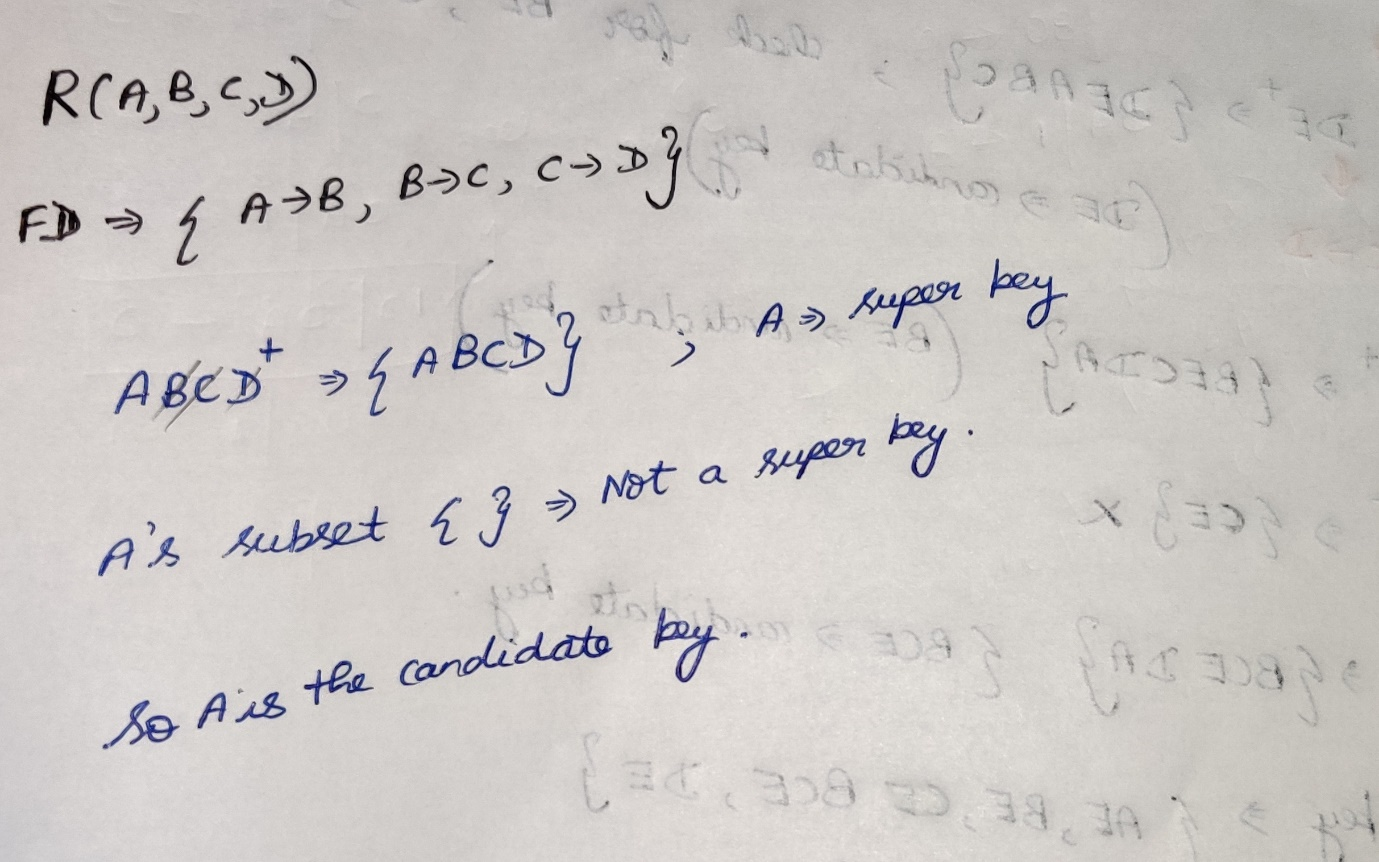 R(A,B,C,D)
FD ⇒ { A→B, B→C, C→D }
ABCD⁺ ⇒ { ABCD } ; A ⇒ super key
A's subset { } ⇒ Not a super key.
So A is the candidate key.